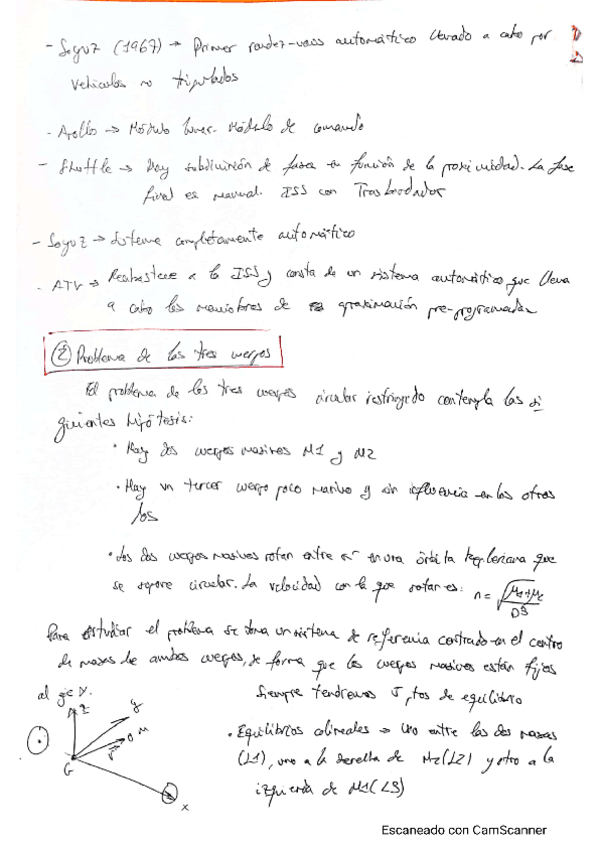 - Soyuz (1967) → Primer rendez-vous automático llevado a cabo por
vehículos no tripulados
- Apollo → Módulo lunar. Módulo de comando
- Shuttle → Hay subdivisión de fases en función de la proximidad. La fase
final es manual. ISS con Trasbordador
- Soyuz → Sistema completamente automático
- ATV → Reabastece a la ISS y consta de un sistema automático que lleva
a cabo las maniobras de aproximación pre-programadas
② Problema de los tres cuerpos
El problema de los tres cuerpos circular restringido contempla las si
guientes hipótesis:
• Hay dos cuerpos masivos M1 y M2
• Hay un tercer cuerpo poco masivo y sin influencia en los otros
dos
• Los dos cuerpos masivos rotan entre sí en una órbita kepleriana que
se supone circular. La velocidad con la que rotan es: n = √(μ1+μ2 / D3)
Para estudiar el problema se toma un sistema de referencia centrado en el centro
de masas de ambos cuerpos, de forma que los cuerpos masivos están fijos
al eje X.
Siempre tendremos 5 ptos de equilibrio
• Equilibrios colineales → Uno entre las dos masas
(L1), uno a la derecha de M2 (L2) y otro a la
izquierda de M1 (L3)
z
y
M
r
G
x
Escaneado con CamScanner